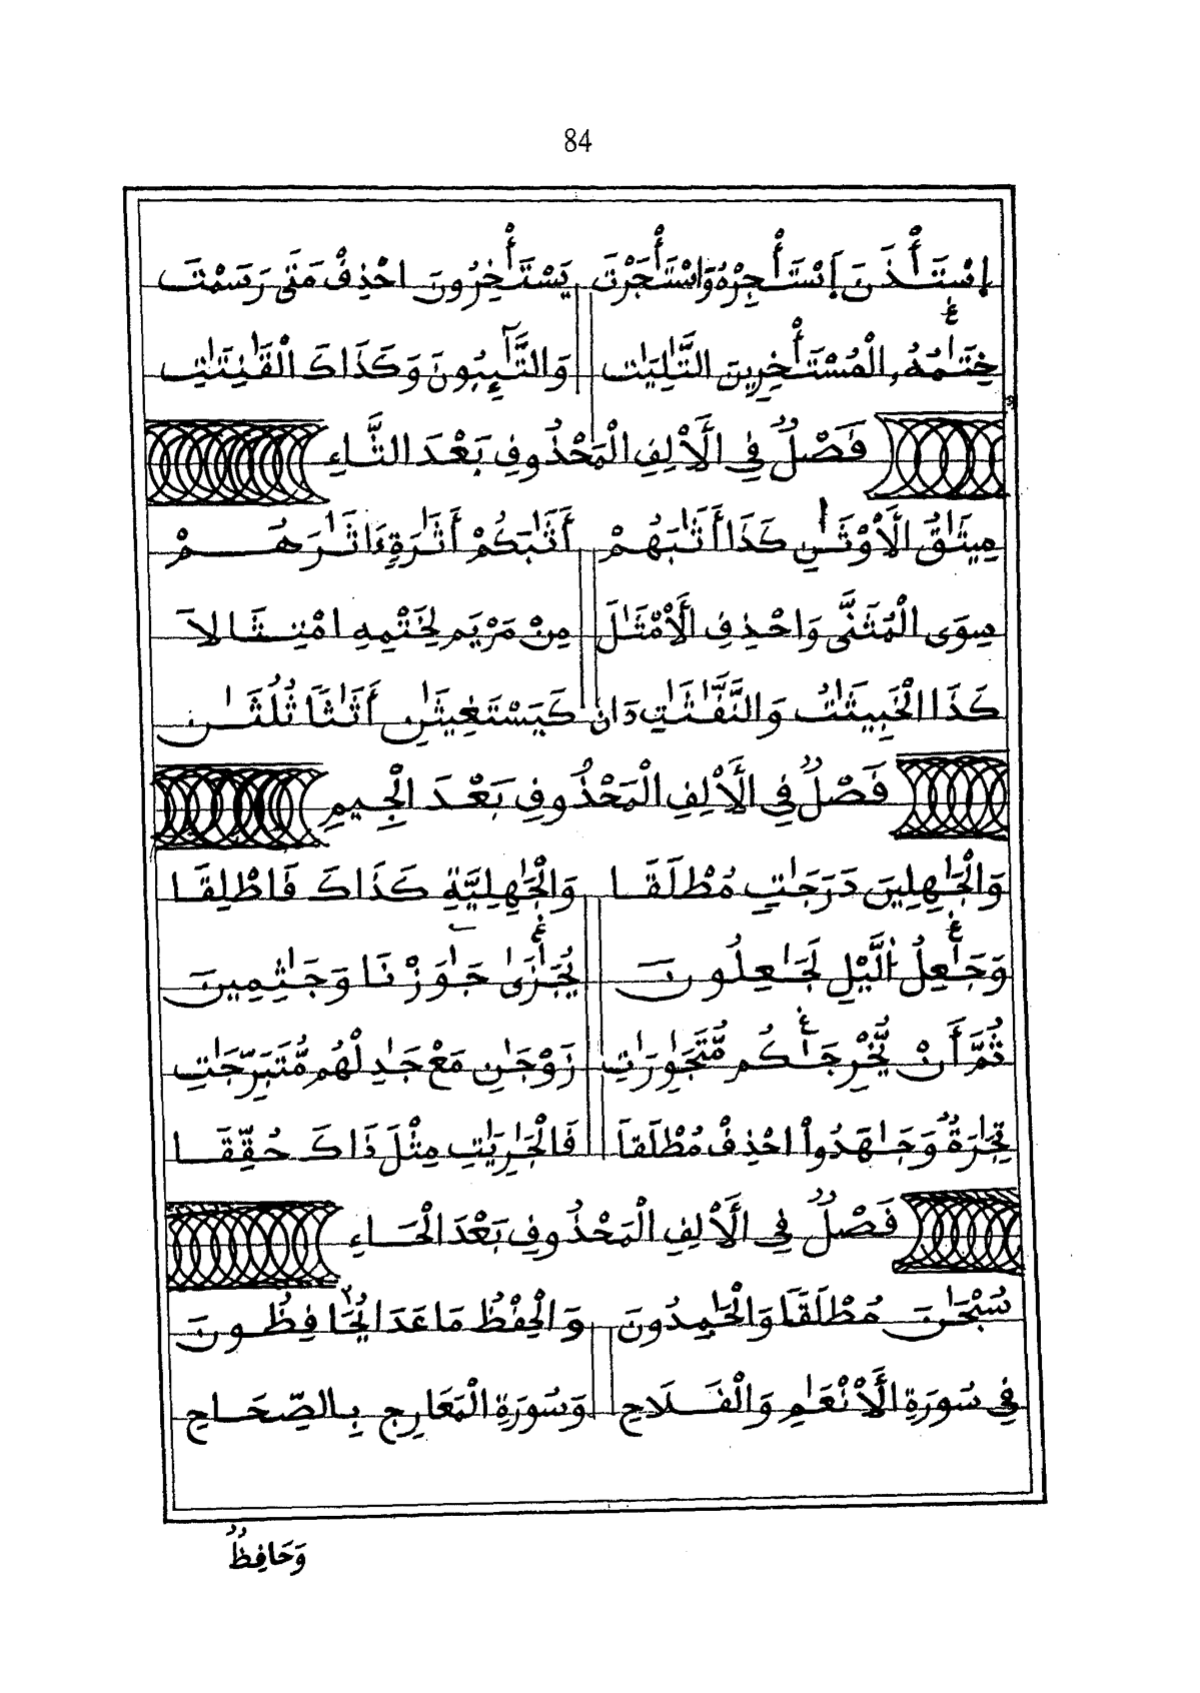 84
إِسْتَأْذَنَ إَسْتَأْجِرْهُ وَاسْتَأْجَرْتَ يَسْتَأْخِرُونَ احْذِفْ مَتَى رَسَمْتَ
خِتَٰمُهُ الْمُسْتَأْخِرِينَ التَّٰلِيَٰتِ وَالتَّٰٓئِبُونَ وَكَذَاكَ الْقَٰنِتَٰتِ
فَصْلٌ فِي الَألِفِ الْمَحْذُوفِ بَعْدَ الثَّاءِ
مِيثَٰقُ الَاوْثَٰنِ كَذَا أَثَٰبَهُمْ أَثَٰبَكُمْ أَثَٰرَةٍ ءَاثَٰرَهُمْ
سِوَى الْمُثَنَّى وَاحْذِفِ الَامْثَٰلَ مِنْ مَرْيَمٍ لِخَتْمِهِ امْتِثَالَا
كَذَا الْخَبِيثَٰتُ وَالنَّفَّٰثَٰتِ دَانِ كَيَسْتَغِيثَٰنِ أَثَٰثًا ثُلُثَٰنِ
فَصْلٌ فِي الَألِفِ الْمَحْذُوفِ بَعْدَ الْجِيمِ
وَالْجَٰهِلِينَ دَرَجَٰتٍ مُطْلَقَا وَالْجَٰهِلِيَّةِ كَذَاكَ فَاطْلِقَا
وَجَٰعِلُ الَّيْلِ لَجَٰعِلُونَ يُجَٰزَىٰ جَٰوَزْنَا وَجَٰثِمِينَ
ثُمَّ أَنْ يُّخْرِجَٰكُم مُّتَجَٰوِرَٰتٍ زَوْجَٰنِ مَعْ جَٰدِلْهُم مُّتَبَرِّجَٰتِ
تِجَٰرَةٌ وَجَٰهَدُواْ احْذِفْ مُطْلَقاَ فَالْجَٰرِيَٰتِ مِثْلَ ذَاكَ حُقِّقَا
فَصْلٌ فِي الَألِفِ الْمَحْذُوفِ بَعْدَ الْحَاءِ
سُبْحَٰنَ مُطْلَقَا وَالْحَٰمِدُونَ وَالْحِفْظُ مَاعَدَا يُحَافِظُونَ
فِي سُورَةِ الَانْعَٰمِ وَالْفَلَاحِ وَسُورَةِ الْمَعَارِجِ بِالصِّحَاحِ
وَحَافِظٌ